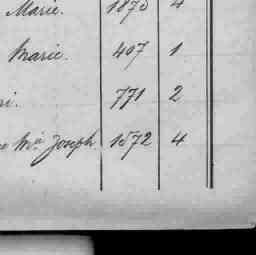 Marie. 1870 4
Marie. 407 1
ri. 771 2
Mie Joseph. 1572 4